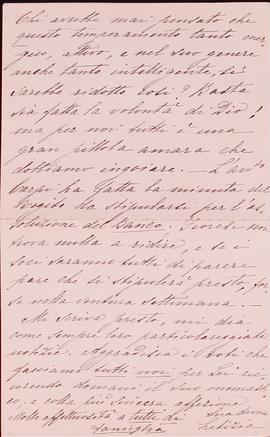 Chi avrebbe mai pensato che
questo temperamento tanto ener
gico, attivo, e nel suo genere
anche tanto intelligente, si
sarebbe ridotto così? Basta
sia fatta la volontà di Dio!
ma per noi tutti è una
gran pillola amara che
dobbiamo ingoiare. — L'avo
ha fatta la minuta del
da stipularsi per l'es
soluzione del Banco.
trova nulla a ridire, e se i
soci saranno tutti di parere
pare che si stipulerà presto, for
se nella ventura settimana —
Mi scriva presto, mi dia
come sempre loro particolareggiate
notizie. Aggradisca i voti che
facciamo tutti noi per Lei ri
correndo domani il Suo onomasti
co. e colla più sincera affezione
Molte affettuosità a tutti di Sua devma
famiglia Letizia